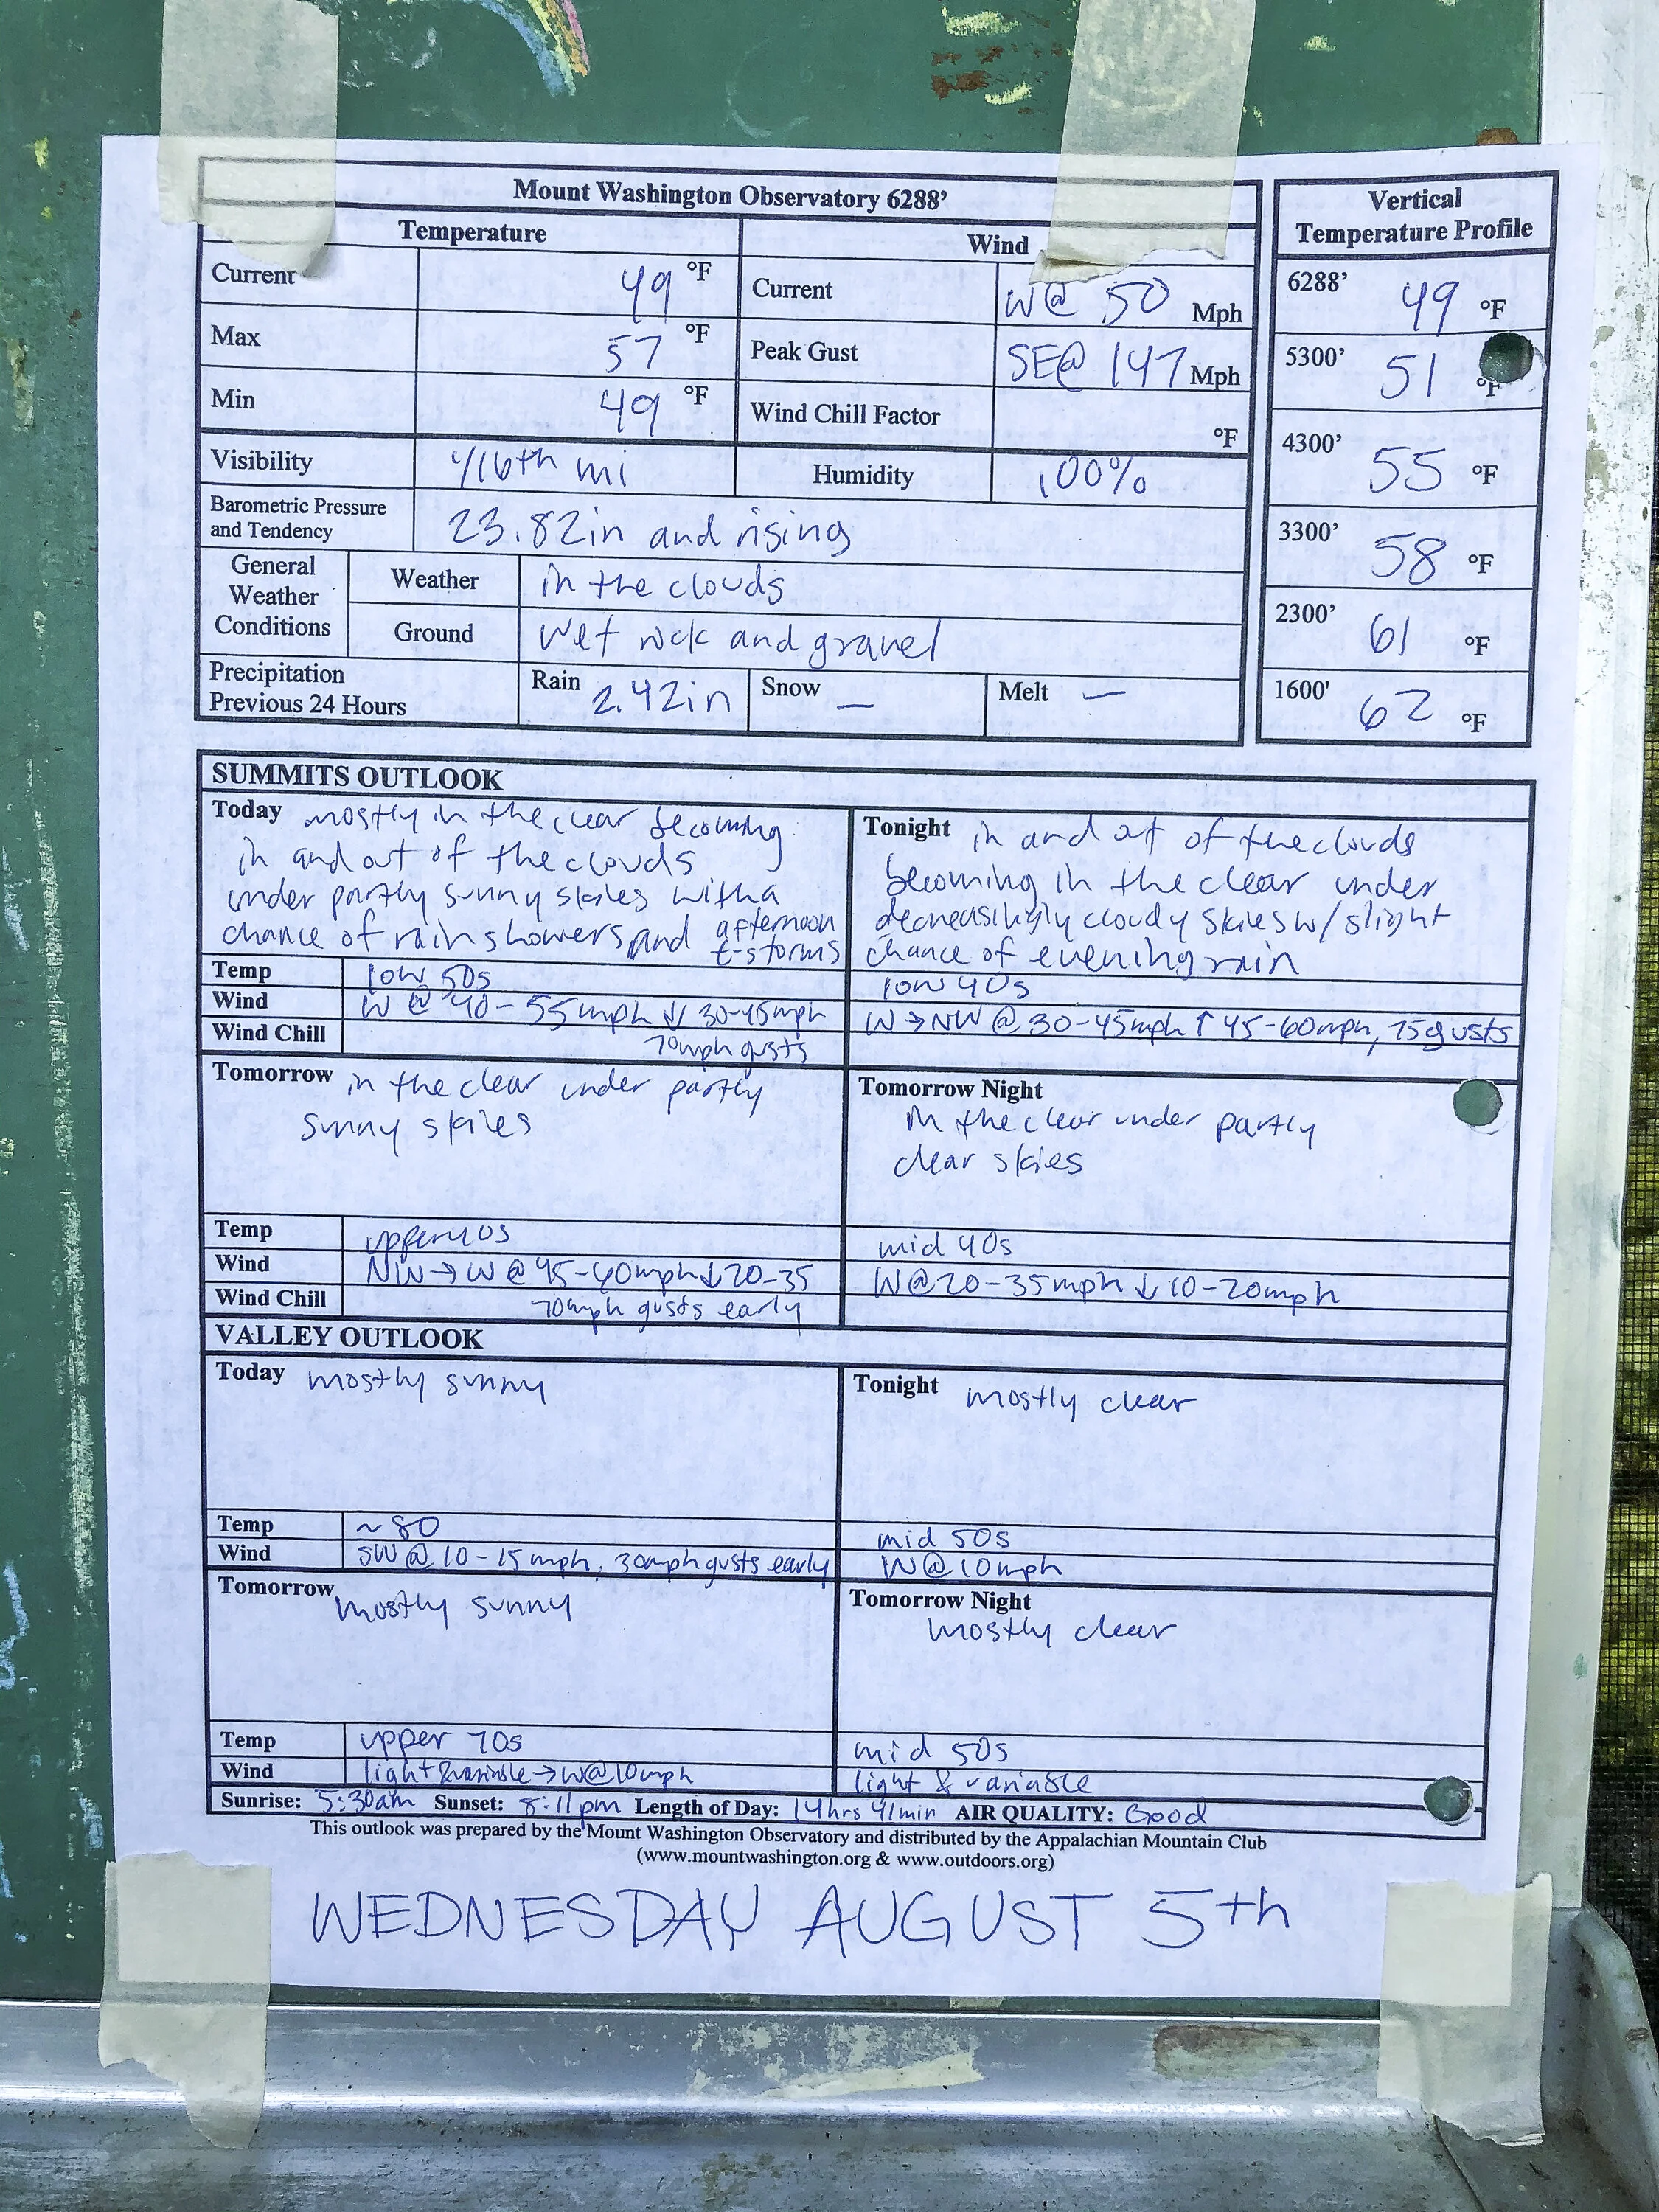 Mount Washington Observatory 6288'
Temperature
Wind
Current 49 °F
Current W@ 50 Mph
Max 57 °F
Peak Gust SE@ 147 Mph
Min 49 °F
Wind Chill Factor °F
Visibility 1/16th mi
Humidity 100%
Barometric Pressure
and Tendency
23.82in and rising
General
Weather
Conditions
Weather in the clouds
Ground wet rock and gravel
Precipitation
Previous 24 Hours
Rain 2.42in
Snow —
Melt —
Vertical
Temperature Profile
6288' 49 °F
5300' 51 °F
4300' 55 °F
3300' 58 °F
2300' 61 °F
1600' 62 °F
SUMMITS OUTLOOK
Today mostly in the clear becoming
in and out of the clouds
under partly sunny skies with a
chance of rain showers and afternoon
t-storms
Temp low 50s
Wind W @ 40-55mph ↓ 30-45mph
Wind Chill 70mph gusts
Tonight in and out of the clouds
becoming in the clear under
decreasingly cloudy skies w/ slight
chance of evening rain
low 40s
W→NW @ 30-45mph ↑ 45-60mph, 75 gusts
Tomorrow in the clear under partly
sunny skies
Temp upper 40s
Wind NW→W @ 45-60mph ↓ 20-35
Wind Chill 70mph gusts early
Tomorrow Night
in the clear under partly
clear skies
mid 40s
W@20-35mph ↓ 10-20mph
VALLEY OUTLOOK
Today mostly sunny
Temp ~80
Wind SW@ 10-15mph, 30mph gusts early
Tonight mostly clear
mid 50s
W@10mph
Tomorrow mostly sunny
Temp upper 70s
Wind light & variable → W@10mph
Tomorrow Night
mostly clear
mid 50s
light & variable
Sunrise: 5:30am Sunset: 8:11pm Length of Day: 14hrs 41min AIR QUALITY: Good
This outlook was prepared by the Mount Washington Observatory and distributed by the Appalachian Mountain Club
(www.mountwashington.org & www.outdoors.org)
WEDNESDAY AUGUST 5th